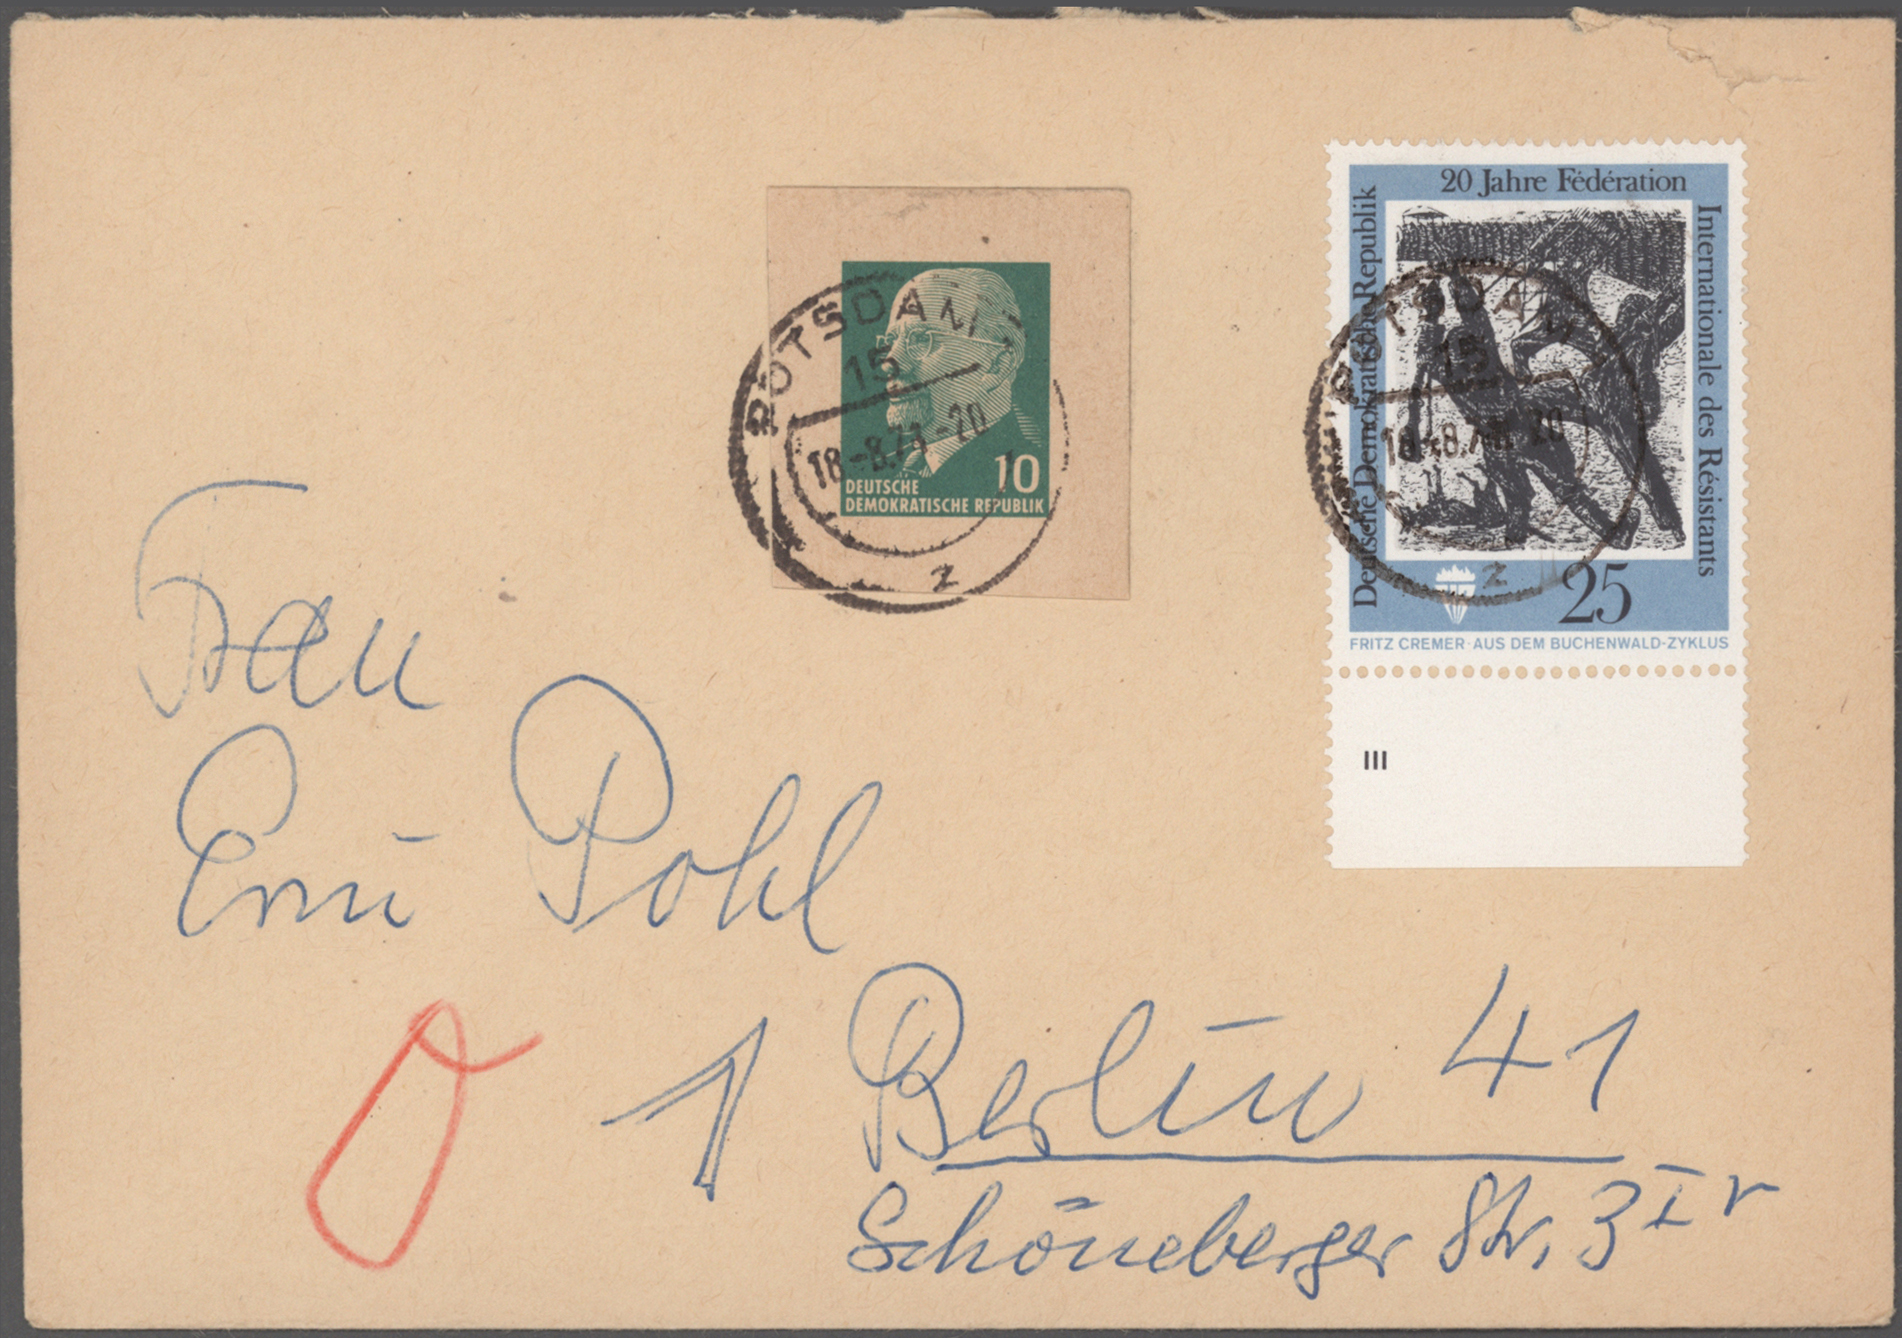 20 Jahre Fédération
Internationale des Résistants
Deutsche Demokratische Republik
25
FRITZ CREMER · AUS DEM BUCHENWALD-ZYKLUS
III
POTSDAM
15
18.-8.71-20
z
10
DEUTSCHE
DEMOKRATISCHE REPUBLIK
POTSDAM
15
18.-8.71-20
z
Frau
Erni Pohl
1 Berlin 41
Schöneberger Str. 3 I r